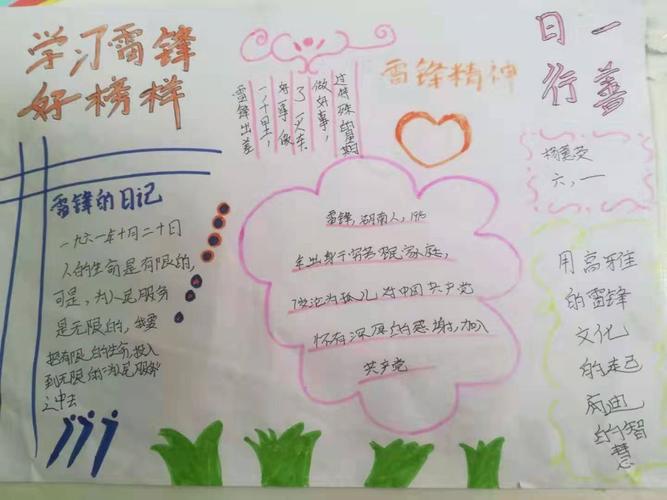 学习雷锋
好榜样
雷锋出差
一千里,
好事做
了一火车
做好事,
过特殊的星期
雷锋精神
日行
一善
六,一
雷锋的日记
一九六一年十月二十日
人的生命是有限的,
可是,为人民服务
是无限的,我要
把有限的生命投入
到无限的为人民服务
之中去
雷锋,湖南人,195
年出身于穷苦 民家庭,
沦为孤儿 对中国共产党
怀有深厚的感谢,加入
共产党
用高雅
的雷锋
文化
的
启迪
的智
慧